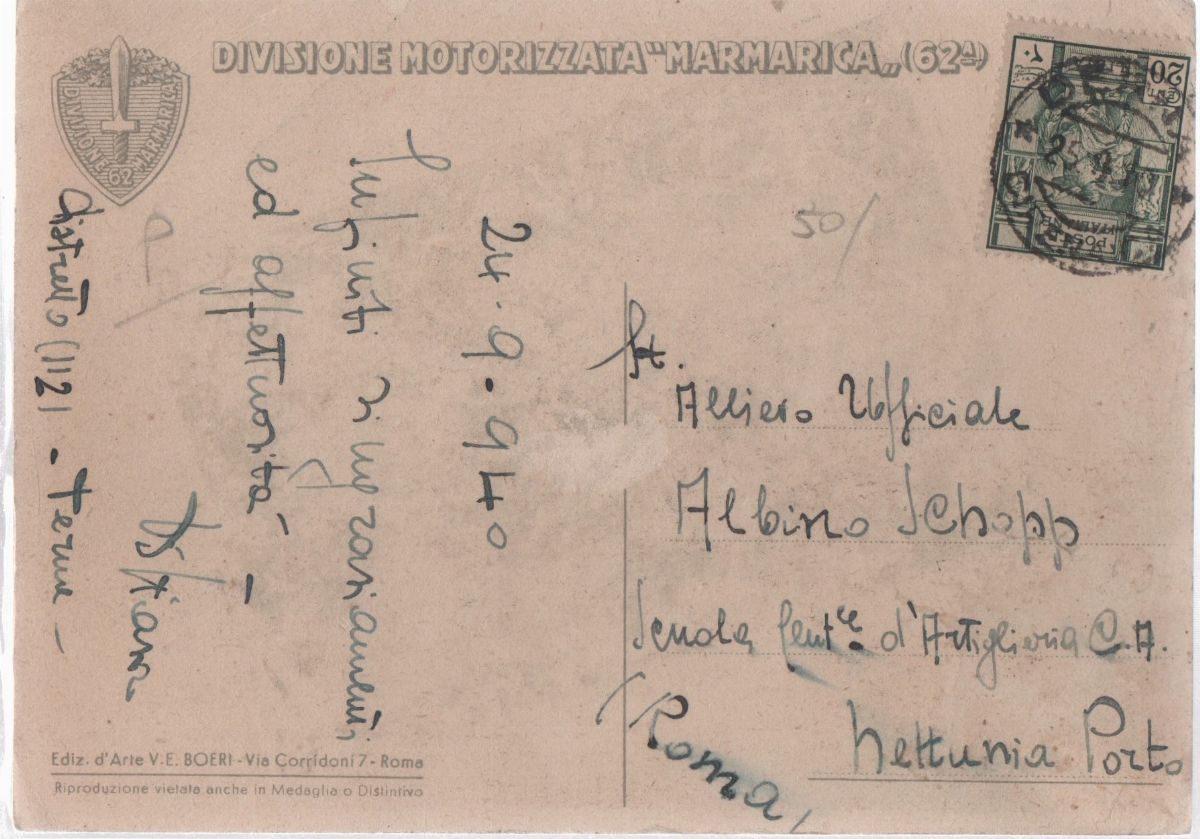 DIVISIONE MOTORIZZATA "MARMARICA" (62ª)
DIVISIONE MARMARICA
62
CENT
20
POSTE
ITALIANE
25.9
50/
24.9.940
Infiniti ringraziamenti
ed affettuosità -
Distretto (112) - Terme -
St.
Allievo Ufficiale
Albino Schopp
Scuola Centle d'Artiglieria C.A.
Nettunia Porto
(Roma)
Ediz. d'Arte V. E. BOERI - Via Corridoni 7 - Roma
Riproduzione vietata anche in Medaglia o Distintivo